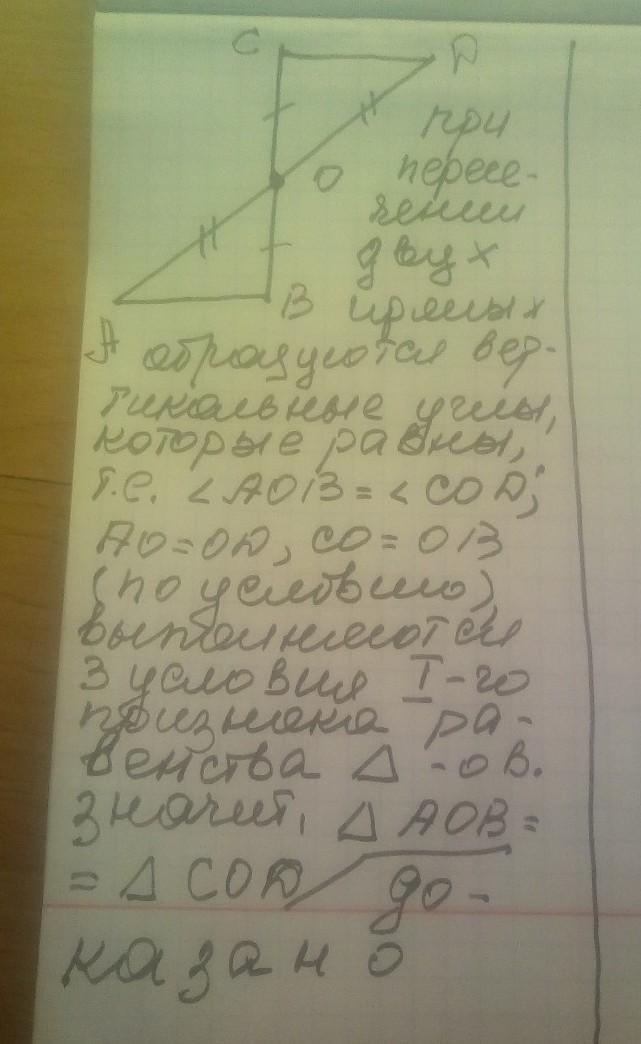 C D
при
O пересе-
чении
двух
B прямых
A образуются вер-
тикальные углы,
которые равны,
т.е. <AOB = <COD;
AO=OD, CO=OB
(по условию),
выполняются
3 условия I-го
признака ра-
венства Δ-ов.
Значит, Δ AOB =
= Δ COD / до-
казано